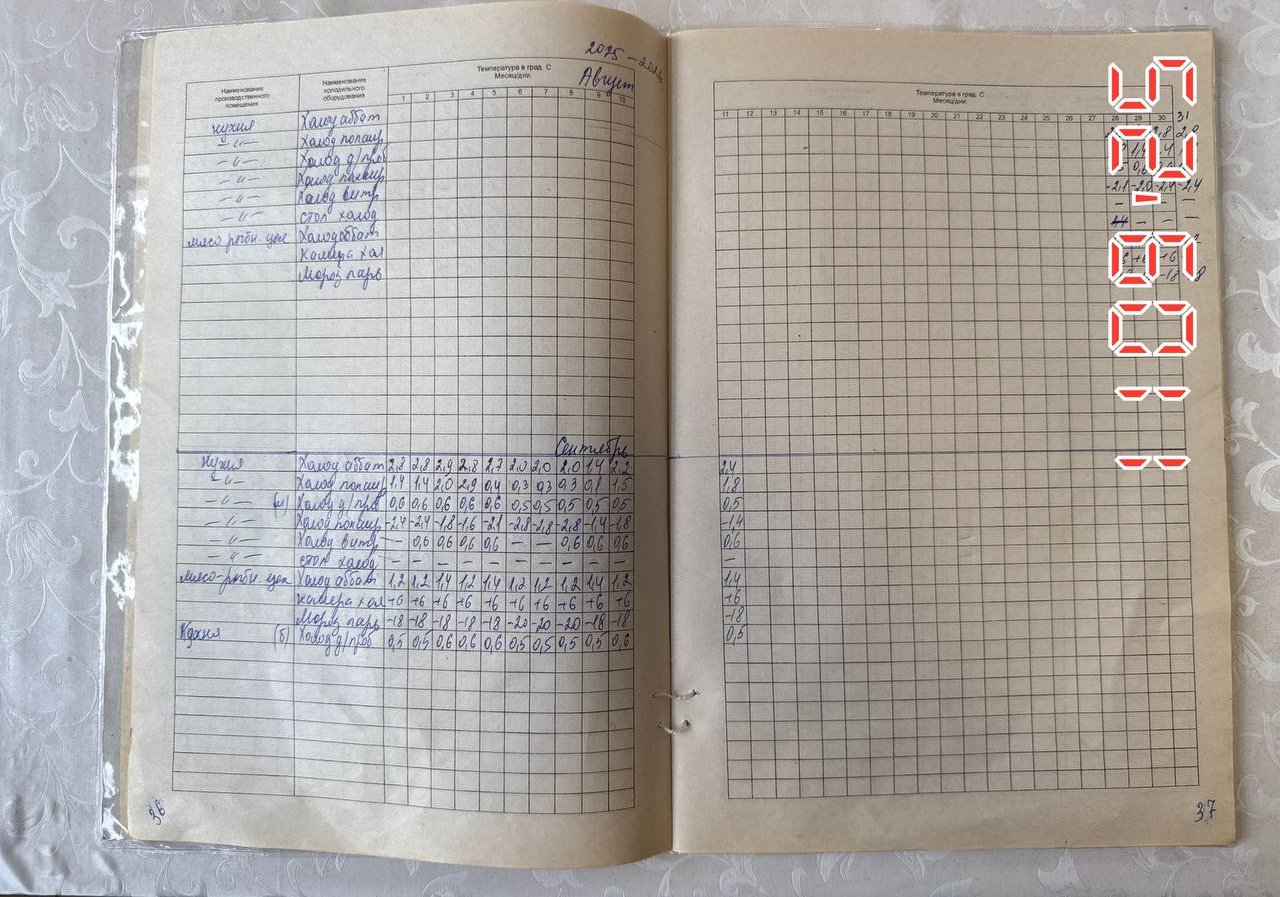 2025-2026
Температура в град. С
Месяц/дни:
Август
Наименование производственного помещения
Наименование холодильного оборудования
1 2 3 4 5 6 7 8 9 10
кухня Холод аббат
-"- Холод
-"- Холод д/проб
-"- Холод
-"- Холод витр
-"- стол холод
мясо рыбн. цех Холод аббат
камера хол
Мороз ларь
Сентябрь
кухня Холод аббат 2,8 2,8 2,9 2,8 2,7 2,0 2,0 2,0 1,4 2,2
-"- Холод 1,4 1,4 2,0 2,9 0,4 0,3 0,3 0,3 0,8 1,5
-"- (м) Холод д/проб 0,6 0,6 0,6 0,6 0,6 0,5 0,5 0,5 0,5 0,5
-"- Холод -2,4 -2,4 -1,8 -1,6 -2,1 -2,8 -2,8 -2,8 -1,4 -1,8
-"- Холод витр — 0,6 0,6 0,6 0,6 — — 0,6 0,6 0,6
-"- стол холод — — — — — — — — — —
мясо-рыбн. цех Холод аббат 1,2 1,2 1,4 1,2 1,4 1,2 1,2 1,2 1,4 1,2
камера хол +6 +6 +6 +6 +6 +6 +6 +6 +6 +6
Мороз ларь -18 -18 -18 -18 -18 -20 -20 -20 -18 -18
Кухня (б) Холод д/проб 0,5 0,5 0,6 0,6 0,6 0,5 0,5 0,5 0,5 0,6
36
Температура в град. С
Месяц/дни:
11 12 13 14 15 16 17 18 19 20 21 22 23 24 25 26 27 28 29 30 31
-2,1 -2,0 -2,4 -2,4
— — — —
— — —
2,4
1,8
0,5
-1,4
0,6
—
1,4
+6
-18
0,5
37
11 09 '25